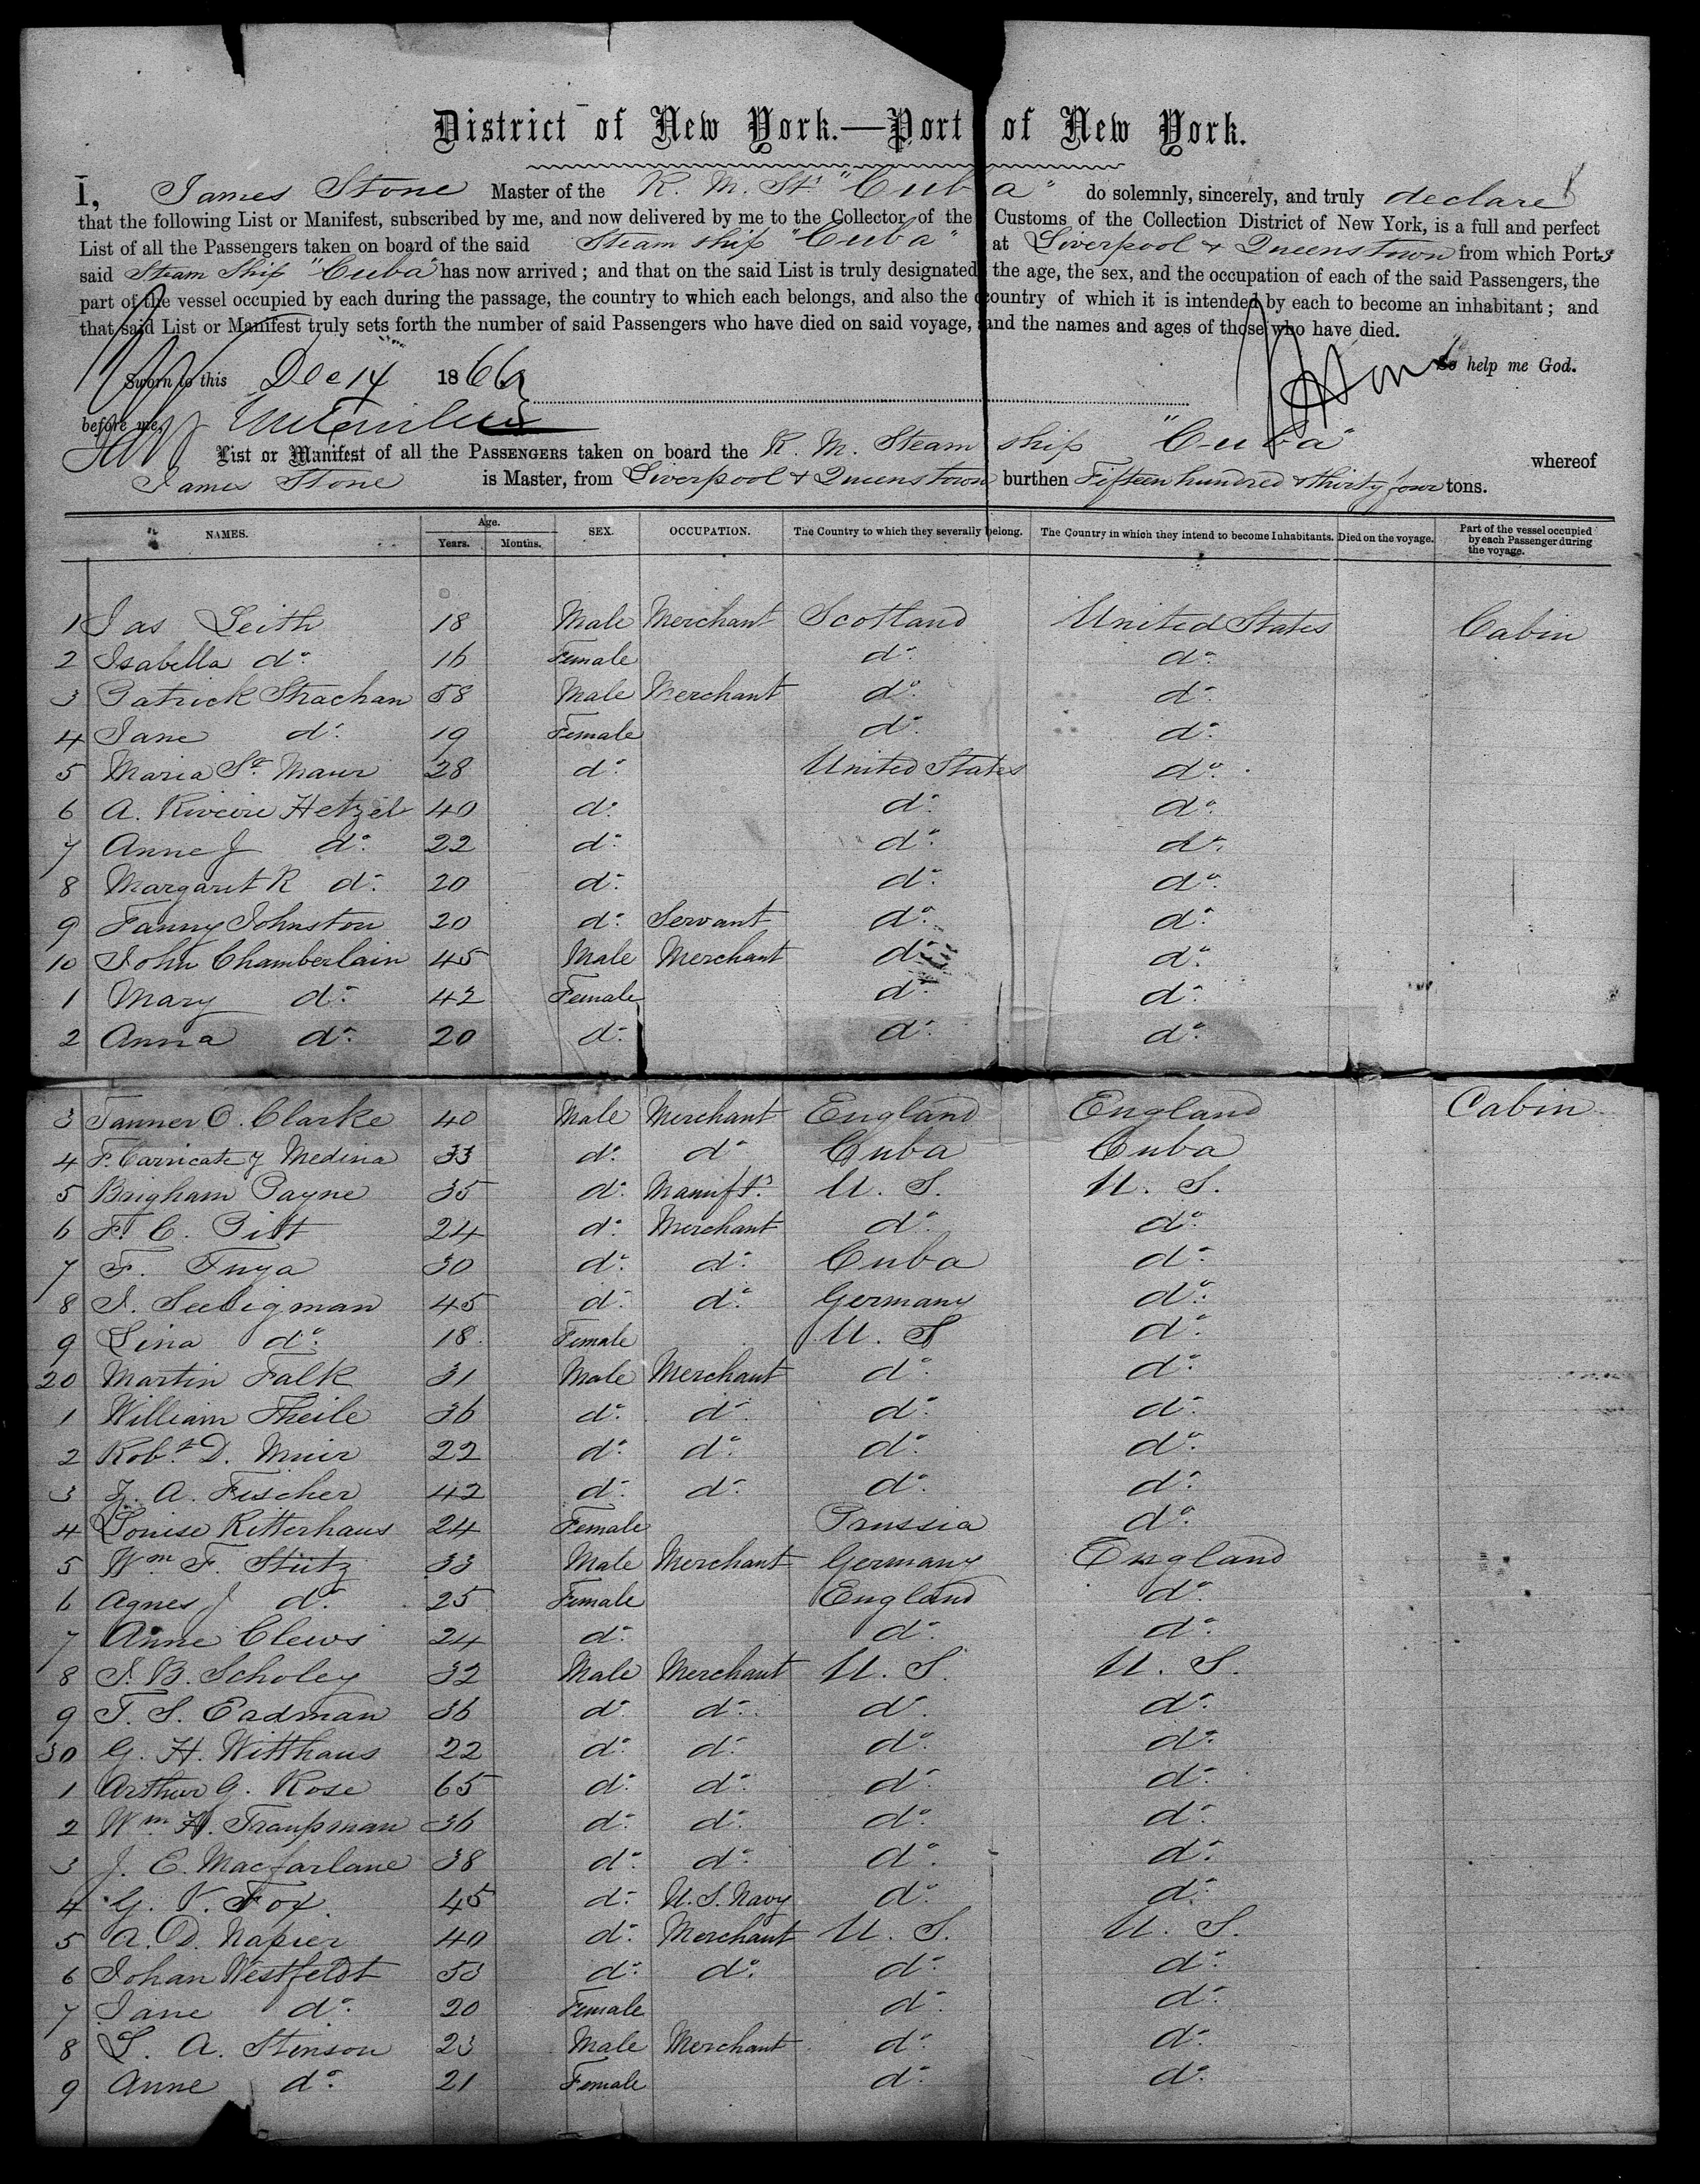 District of New York.—Port of New York.
I, James Stone Master of the R. M. St. "Cuba" do solemnly, sincerely, and truly declare
that the following List or Manifest, subscribed by me, and now delivered by me to the Collector of the Customs of the Collection District of New York, is a full and perfect
List of all the Passengers taken on board of the said Steam ship "Cuba" at Liverpool & Queenstown from which Ports
said Steam Ship "Cuba" has now arrived; and that on the said List is truly designated the age, the sex, and the occupation of each of the said Passengers, the
part of the vessel occupied by each during the passage, the country to which each belongs, and also the country of which it is intended by each to become an inhabitant; and
that said List or Manifest truly sets forth the number of said Passengers who have died on said voyage, and the names and ages of those who have died.
So help me God.
Sworn to this Dec 14 1866
before me,
List or Manifest of all the PASSENGERS taken on board the R. M. Steam ship "Cuba" whereof
James Stone is Master, from Liverpool & Queenstown burthen Fifteen hundred & thirty four tons.
NAMES. Age. Years. Months. SEX. OCCUPATION. The Country to which they severally belong. The Country in which they intend to become Inhabitants. Died on the voyage. Part of the vessel occupied by each Passenger during the voyage.
1 Jas Leith 18 Male Merchant Scotland United States Cabin
2 Isabella do. 16 Female do. do.
3 Patrick Strachan 58 Male Merchant do. do.
4 Jane do. 19 Female do. do.
5 Maria St. Maur 28 do. United States do.
6 A. Hetzel 40 do. do. do.
7 Anne J do. 22 do. do. do.
8 Margaret R do. 20 do. do. do.
9 Fanny Johnston 20 do. Servant do. do.
10 John Chamberlain 45 Male Merchant do. do.
1 Mary do. 42 Female do. do.
2 Anna do. 20 do. do. do.
3 Tanner O. Clarke 40 Male Merchant England England Cabin
4 F. y Medina 33 do. do Cuba Cuba
5 Brigham Payne 35 do. Manuftr. U. S. U. S.
6 F. C. Pitt 24 do. Merchant do. do.
7 F. Fuya 30 do. do. Cuba do.
8 J. Seeligman 45 do. do. Germany do.
9 Lina do. 18 Female U. S do.
20 Martin Falk 31 Male Merchant do. do.
1 William Theile 36 do. do. do. do.
2 Robt. D. Muir 22 do. do. do. do.
3 A. Fischer 42 do. do. do. do.
4 Louise Ritterhaus 24 Female Prussia do.
5 Wm. F. Stütz 33 Male Merchant Germany England
6 Agnes J do. 25 Female England do.
7 Anne Clews 24 do. do. do.
8 J. B. Scholey 32 Male Merchant U. S. U. S.
9 T. S. Eadman 36 do. do. do. do.
30 G. H. Witthaus 22 do. do. do. do.
1 Arthur G. Rose 65 do. do. do. do.
2 Wm. H. Traupman 36 do. do. do. do.
3 J. E. Macfarlane 38 do. do. do. do.
4 G. V. Fox 45 do. U. S. Navy do. do.
5 A. D. Napier 40 do. Merchant U. S. U. S.
6 Johan Westfeldt 53 do. do. do. do.
7 Jane do. 20 Female do. do.
8 L. A. Stenson 23 Male Merchant do. do.
9 Anne do. 21 Female do. do.